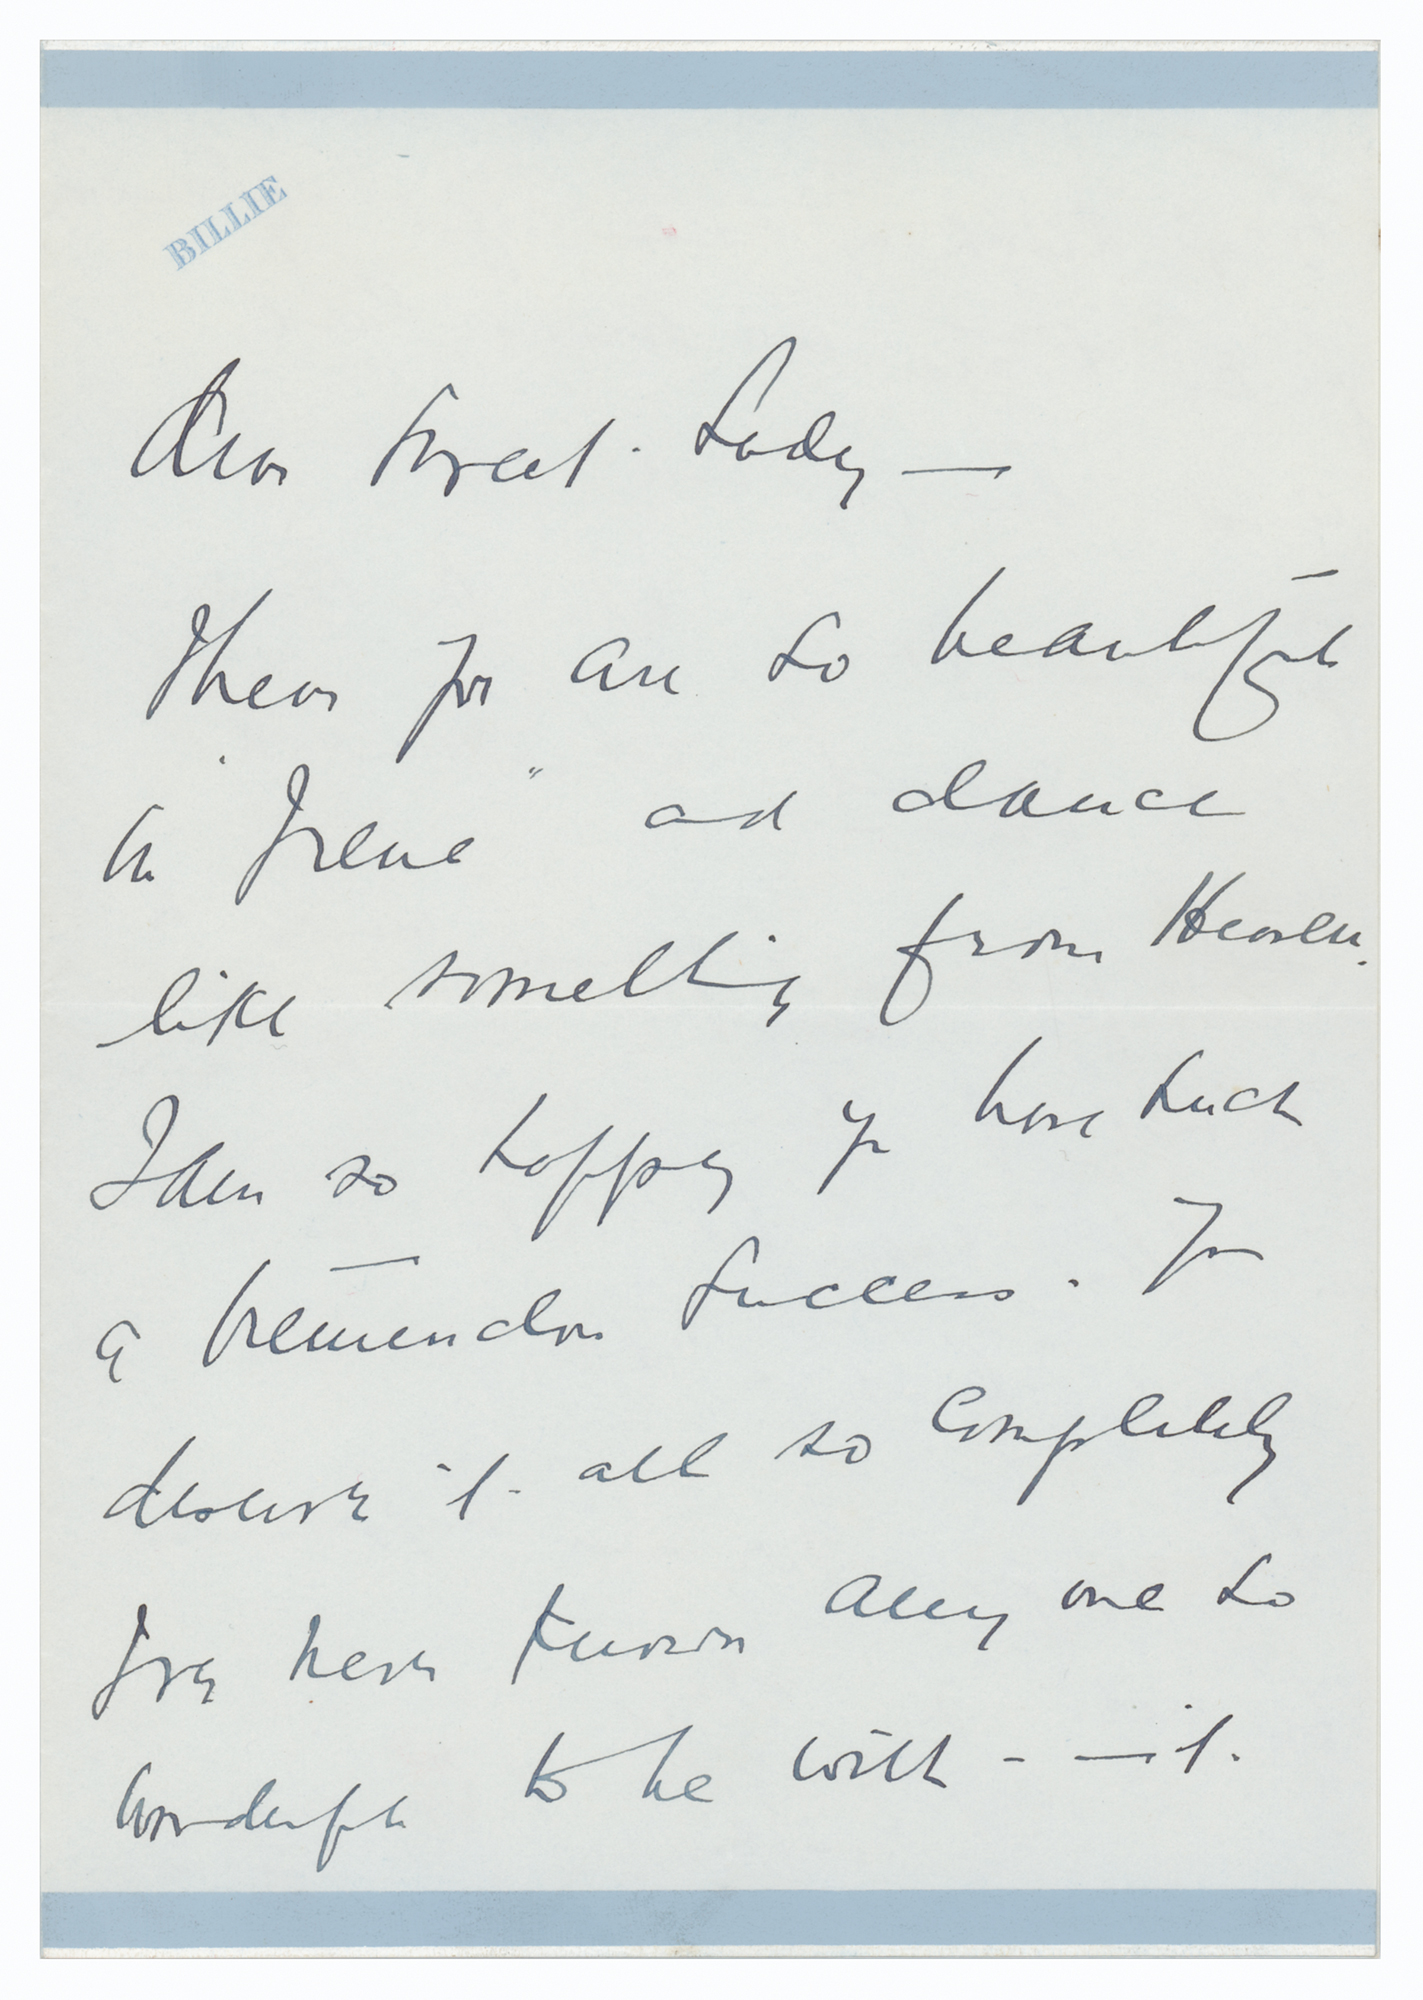 BILLIE
Dear Sweet Lady —
I hear you are so beautiful
in "Irene" and dance
like something from Heaven.
I am so happy you have such
a tremendous success. You
deserve it all so completely
I've never known any one so
wonderful to be with - — it.